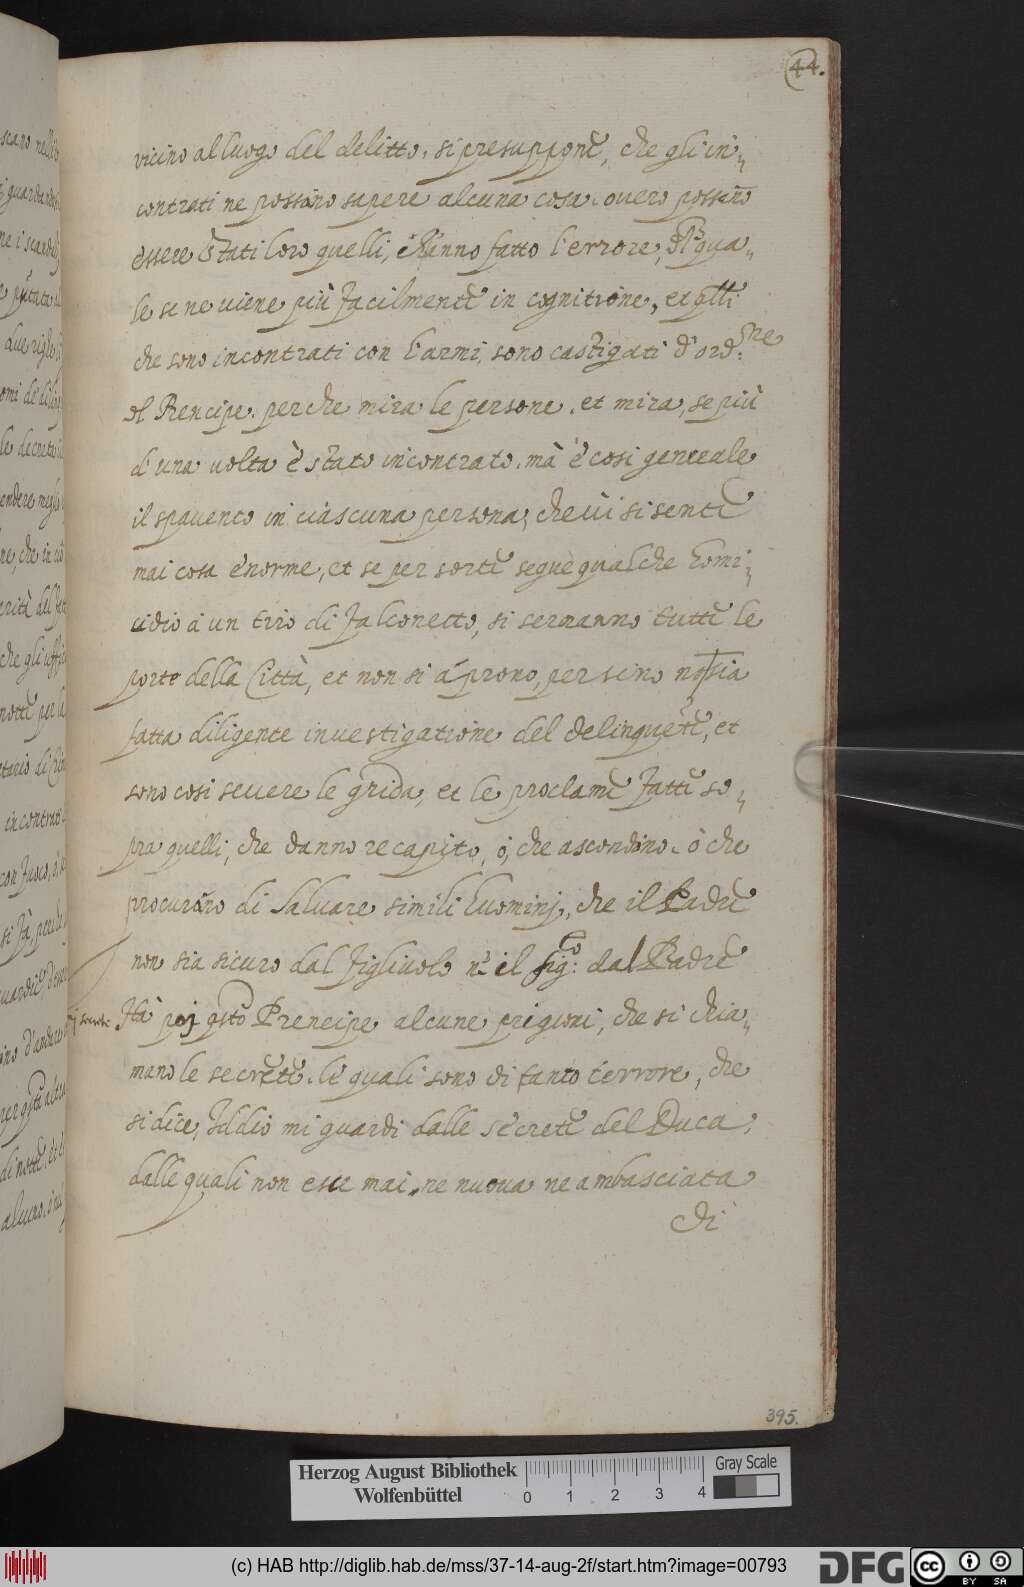 44.
vicino al luogo del delitto, si presuppone, che gli in„
contrati ne possano sapere alcuna cosa. ouero possino
essere stati loro quelli, ch'hanno fatto l'errore, il qua„
le se ne uiene più facilmente in cognitione, et qlli
che sono incontrati con l'armi, sono castigati d'ord:ne
del Prencipe. perche mira le persone. et mira, se più
di una uolta è stato incontrato. mà è cosi generale
il spauento in ciascuna persona, che ui si sente
mai cosa énorme, et se per sorte segue qualche homi„
cidio à un tiro di falconetto, si serranno tutte le
porte della Città, et non si áprono, per sino nō sia
fatta diligente inuestigatione del delinquēte, et
sono cosi seuere le grida, et le proclame fatte so„
pra quelli, che danno recapito, ò, che ascondino. ò che
procurino di saluare simili huominj, che il Padre
non sia sicuro dal figliuolo nè il fig:lo dal Padre
Hà poj qsto Prencipe alcune prigioni, che si chia„
mano le secrete. le quali sono di tanto terrore, che
si dice, Iddio mi guardi dalle secrete del Duca,
dalle quali non esce mai, ne nuoua ne ambasciata
di
395.
Herzog August Bibliothek
Wolfenbüttel
0 1 2 3 4
Gray Scale
(c) HAB http://diglib.hab.de/mss/37-14-aug-2f/start.htm?image=00793
DFG
cc BY SA